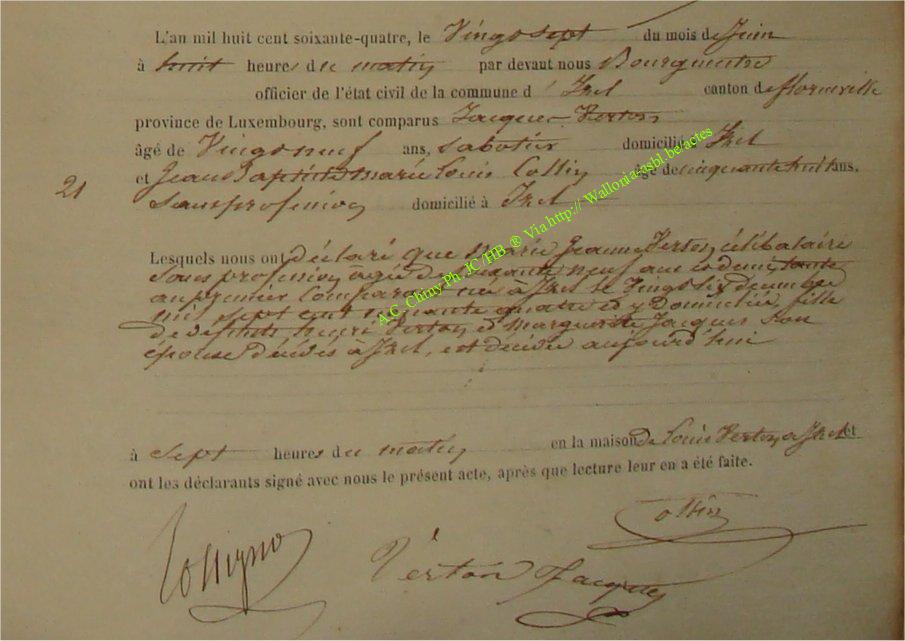 L'an mil huit cent soixante-quatre, le Vingt sept du mois de Juin
à huit heures du matin par devant nous Bourgmestre
officier de l'état civil de la commune d'Izel canton de florenville
province de Luxembourg, sont comparus Jacques Verton
âgé de Vingt neuf ans, sabotier domicilié à Izel
21 et Jean Baptiste marie Louis Collin âgé de cinquante huit ans,
Sans profession domicilié à Izel
Lesquels nous ont déclaré que Marie Jeanne Verton, célibataire
Sans profession, agée de soixante neuf ans et demi, tante
au premier Comparant née à Izel le Vingt six decembre
mil sept cent nonante quatre et y domiciliée, fille
de henri Verton et Marguerite Jacques son
épouse décédés à Izel, est décédée aujourd'hui
à sept heures du matin en la maison de Louis Verton à Izel et
ont les déclarants signé avec nous le présent acte, après que lecture leur en a été faite.
Collin
Verton Jacques
A.C. Chiny Ph. JC/HB ® Via http://Wallonia-asbl.be/actes